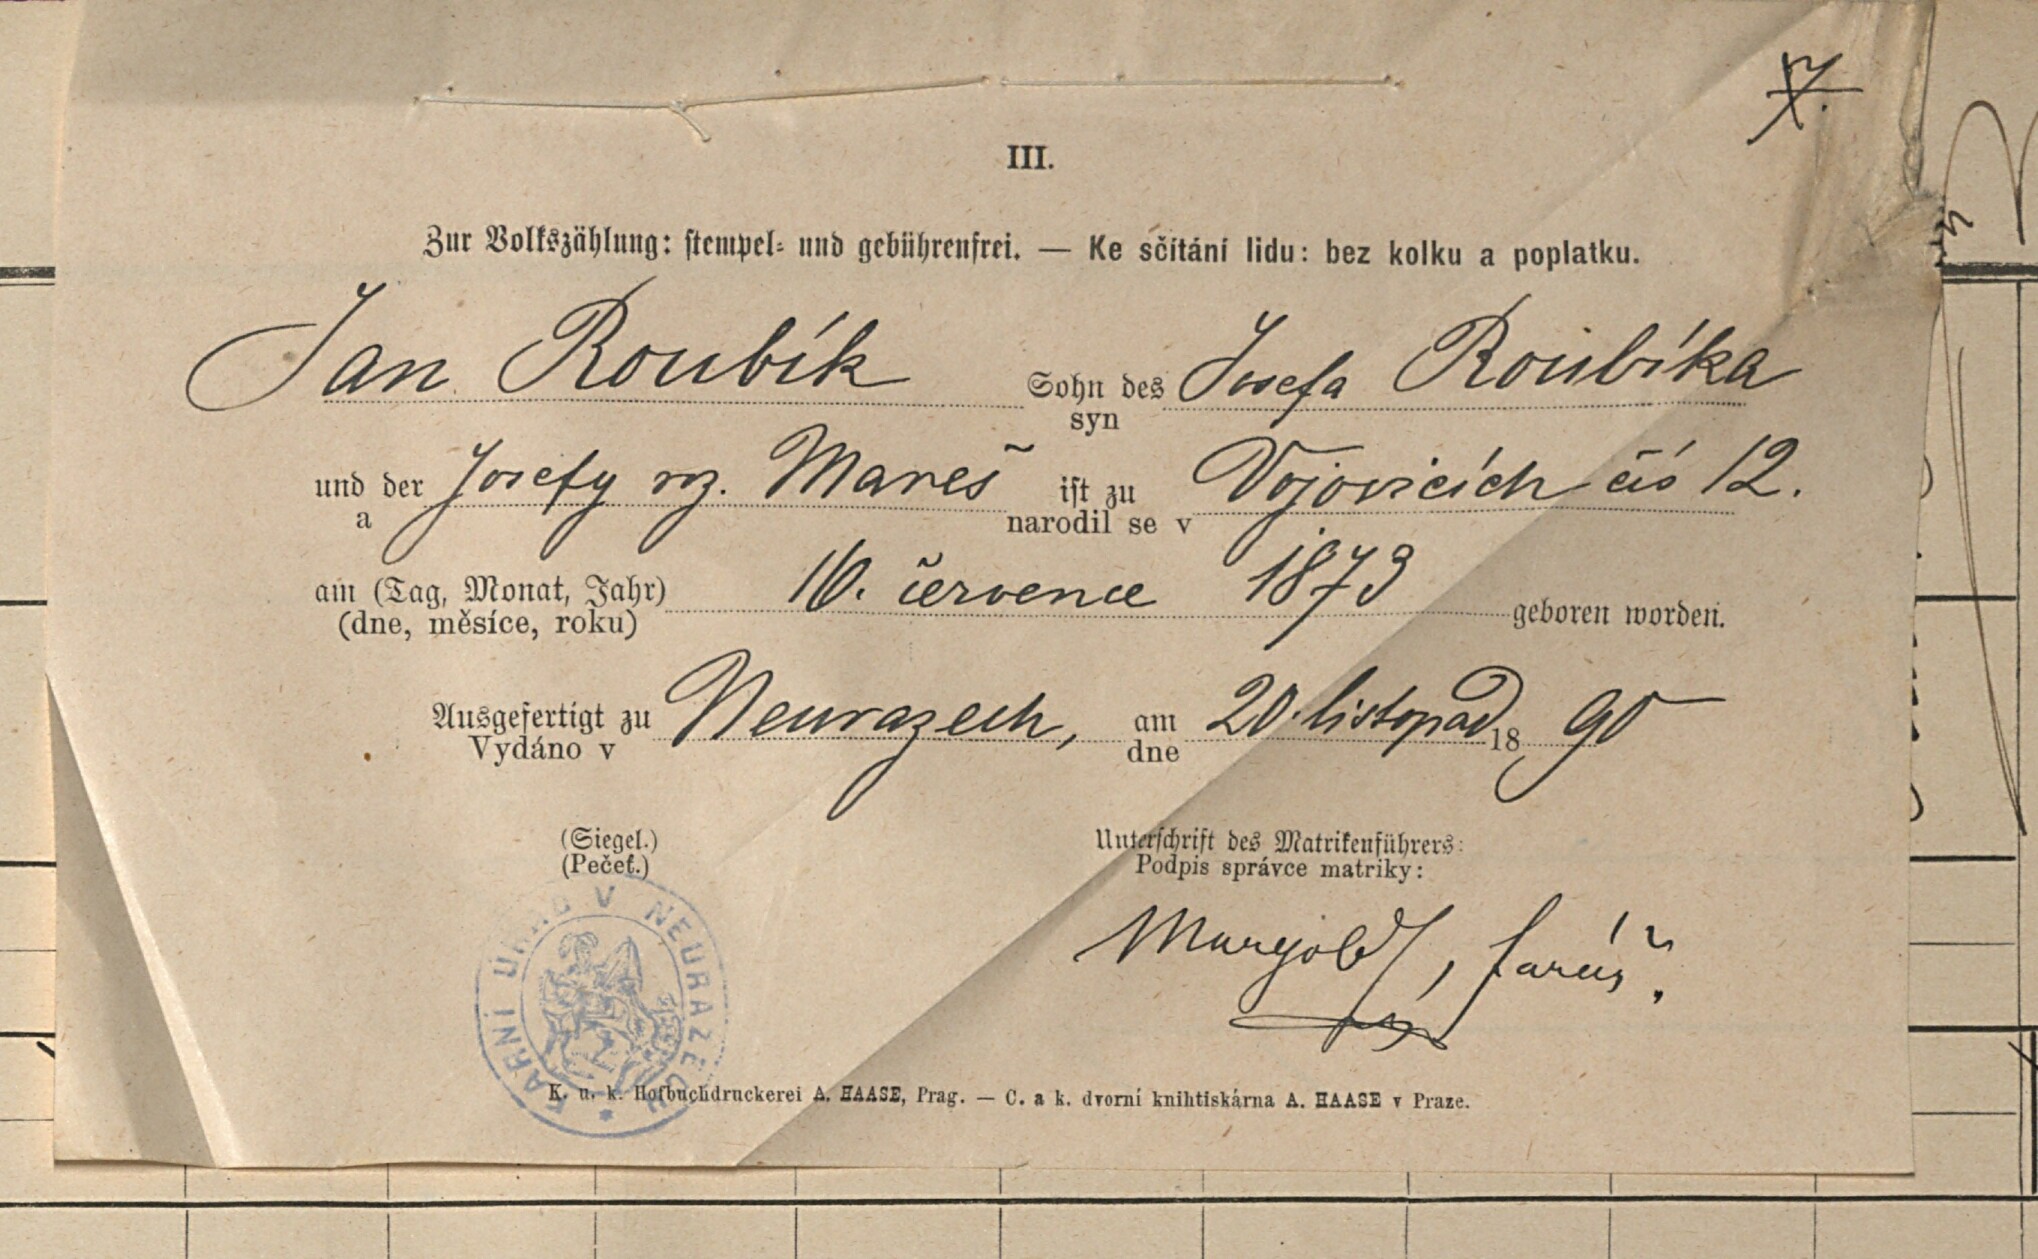 7.
III.
Zur Volkszählung: stempel- und gebührenfrei. — Ke sčítání lidu: bez kolku a poplatku.
Jan Roubík Sohn des Josefa Roubíka
syn
und der Josefy roz. Mareš ist zu Vojovicích čís 12.
a narodil se v
am (Tag, Monat, Jahr) 16. července 1873 geboren worden.
(dne, měsíce, roku)
Ausgefertigt zu Neurazech, am 20. listopad 1890
Vydáno v dne
(Siegel.) Unterschrift des Matrikenführers:
(Pečeť.) Podpis správce matriky:
FARNÍ ÚŘAD V NEURAZECH
Margold, farář.
K. u. k. Hofbuchdruckerei A. HAASE, Prag. — C. a k. dvorní knihtiskárna A. HAASE v Praze.